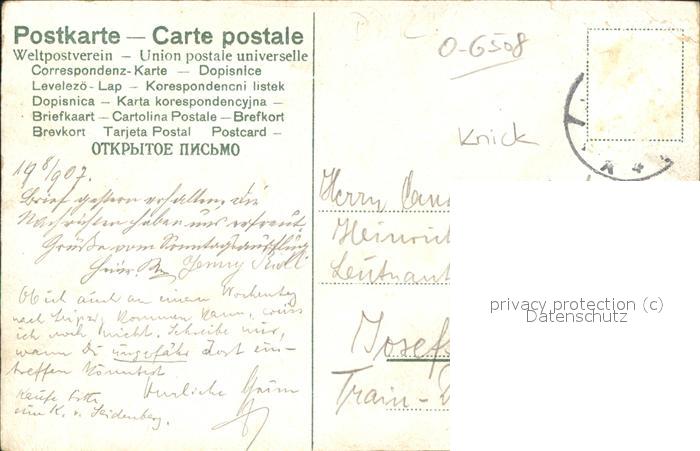 Postkarte — Carte postale
Weltpostverein — Union postale universelle
Correspondenz-Karte — Dopisnice
Levelező-Lap — Korespondencni listek
Dopisnica — Karta korespondencyjna —
Briefkaart — Cartolina Postale — Brefkort
Brevkort Tarjeta Postal Postcard —
ОТКРЫТОЕ ПИСЬМО
0-6508
Knick
19 8/907.
Brief gestern erhalten, die
Nachrichten haben uns erfreut.
Grüße vom Sonntagsausflug
Jenny
Ob ich auch an einem Wochentag
nach Leipzig kommen kann, weiss
ich noch nicht. Schreibe mir,
wann Du ungefähr dort ein-
treffen könntest
Herzliche
kaufe bitte
von K. v. Seidenberg.
Herrn
Heinrich
Leutnant
Josefs
Train-
privacy protection (c)
Datenschutz